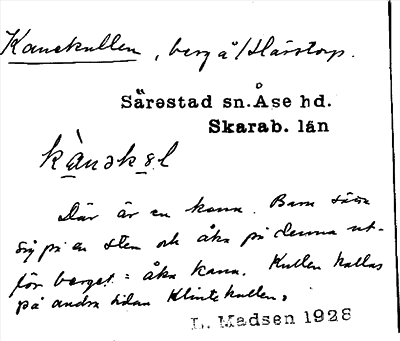 Kanekullen, berg å /Härstorp.
Särestad sn. Åse hd.
Skarab. län
kànək8l
Där är en kana. Barn sätta
sig på en sten och åka på denna ut-
för berget = åka kana. Kullen kallas
på andra sidan Klintekullen.
L. Madsen 1928